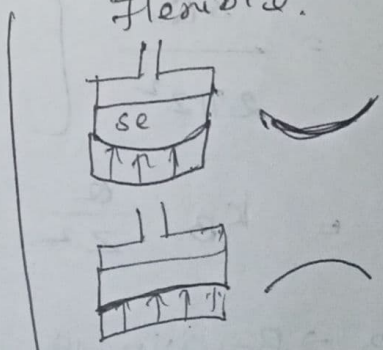 Flexible.
se